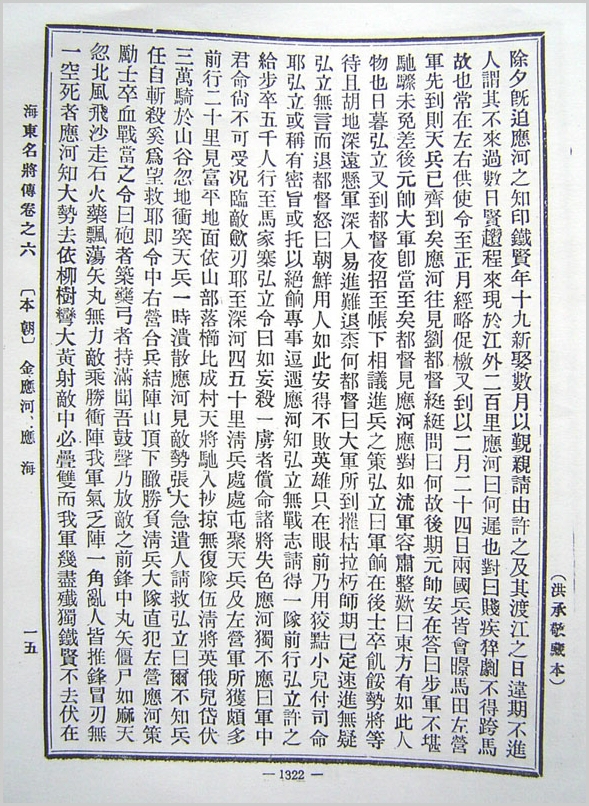 除夕旣迫應河之知印鐵賢年十九新娶數月以覲親請由許之及其渡江之日違期不進
人謂其不來過數日賢趲程來現於江外二百里應河曰何遲也對曰賤疾猝劇不得跨馬
故也常在左右供使令至正月經略促檄又到以二月二十四日兩國兵皆會㬒馬田左營
軍先到則天兵已齊到矣應河往見劉都督綎綎問曰何故後期元帥安在答曰步軍不堪
馳驟未免差後元帥大軍卽當至矣都督見應河應對如流軍容肅整歎曰東方有如此人
物也日暮弘立又到都督夜招至帳下相議進兵之策弘立曰軍餉在後士卒飢餒勢將等
待且胡地深遠懸軍深入易進難退柰何都督曰大軍所到摧枯拉朽師期已定速進無疑
弘立無言而退都督怒曰朝鮮用人如此安得不敗英雄只在眼前乃用狡黠小兒付司命
耶弘立或稱有密旨或托以絕餉專事逗遛應河知弘立無戰志請得一隊前行弘立許之
給步卒五千人行至馬家寨弘立令曰如妄殺一虜者償命諸將失色應河獨不應曰軍中
君命尙不可受况臨敵歛刃耶至深河四五十里淸兵處處屯聚天兵及左營軍所獲頗多
前行二十里見富平地面依山部落櫛比成村天將馳入抄掠無復隊伍淸將英俄兒岱伏
三萬騎於山谷忽地衝突天兵一時潰散應河見敵勢張大急遣人請救弘立曰爾不知兵
任自斬殺奚爲望救耶卽令中右營合兵結陣山頂下瞰勝負淸兵大隊直犯左營應河策
勵士卒血戰當之令曰砲者築藥弓者持滿聞吾鼓聲乃放敵之前鋒中丸矢僵尸如麻天
忽北風飛沙走石火藥飄蕩矢丸無力敵乘勝衝陣我軍氣乏陣一角亂人皆推鋒冒刃無
一空死者應河知大勢去依柳樹彎大黃射敵中必疊雙而我軍幾盡殲獨鐵賢不去伏在
海東名將傳卷之六 〔本朝〕 金應河、應海
一五
（洪承敬藏本）
— 1322 —